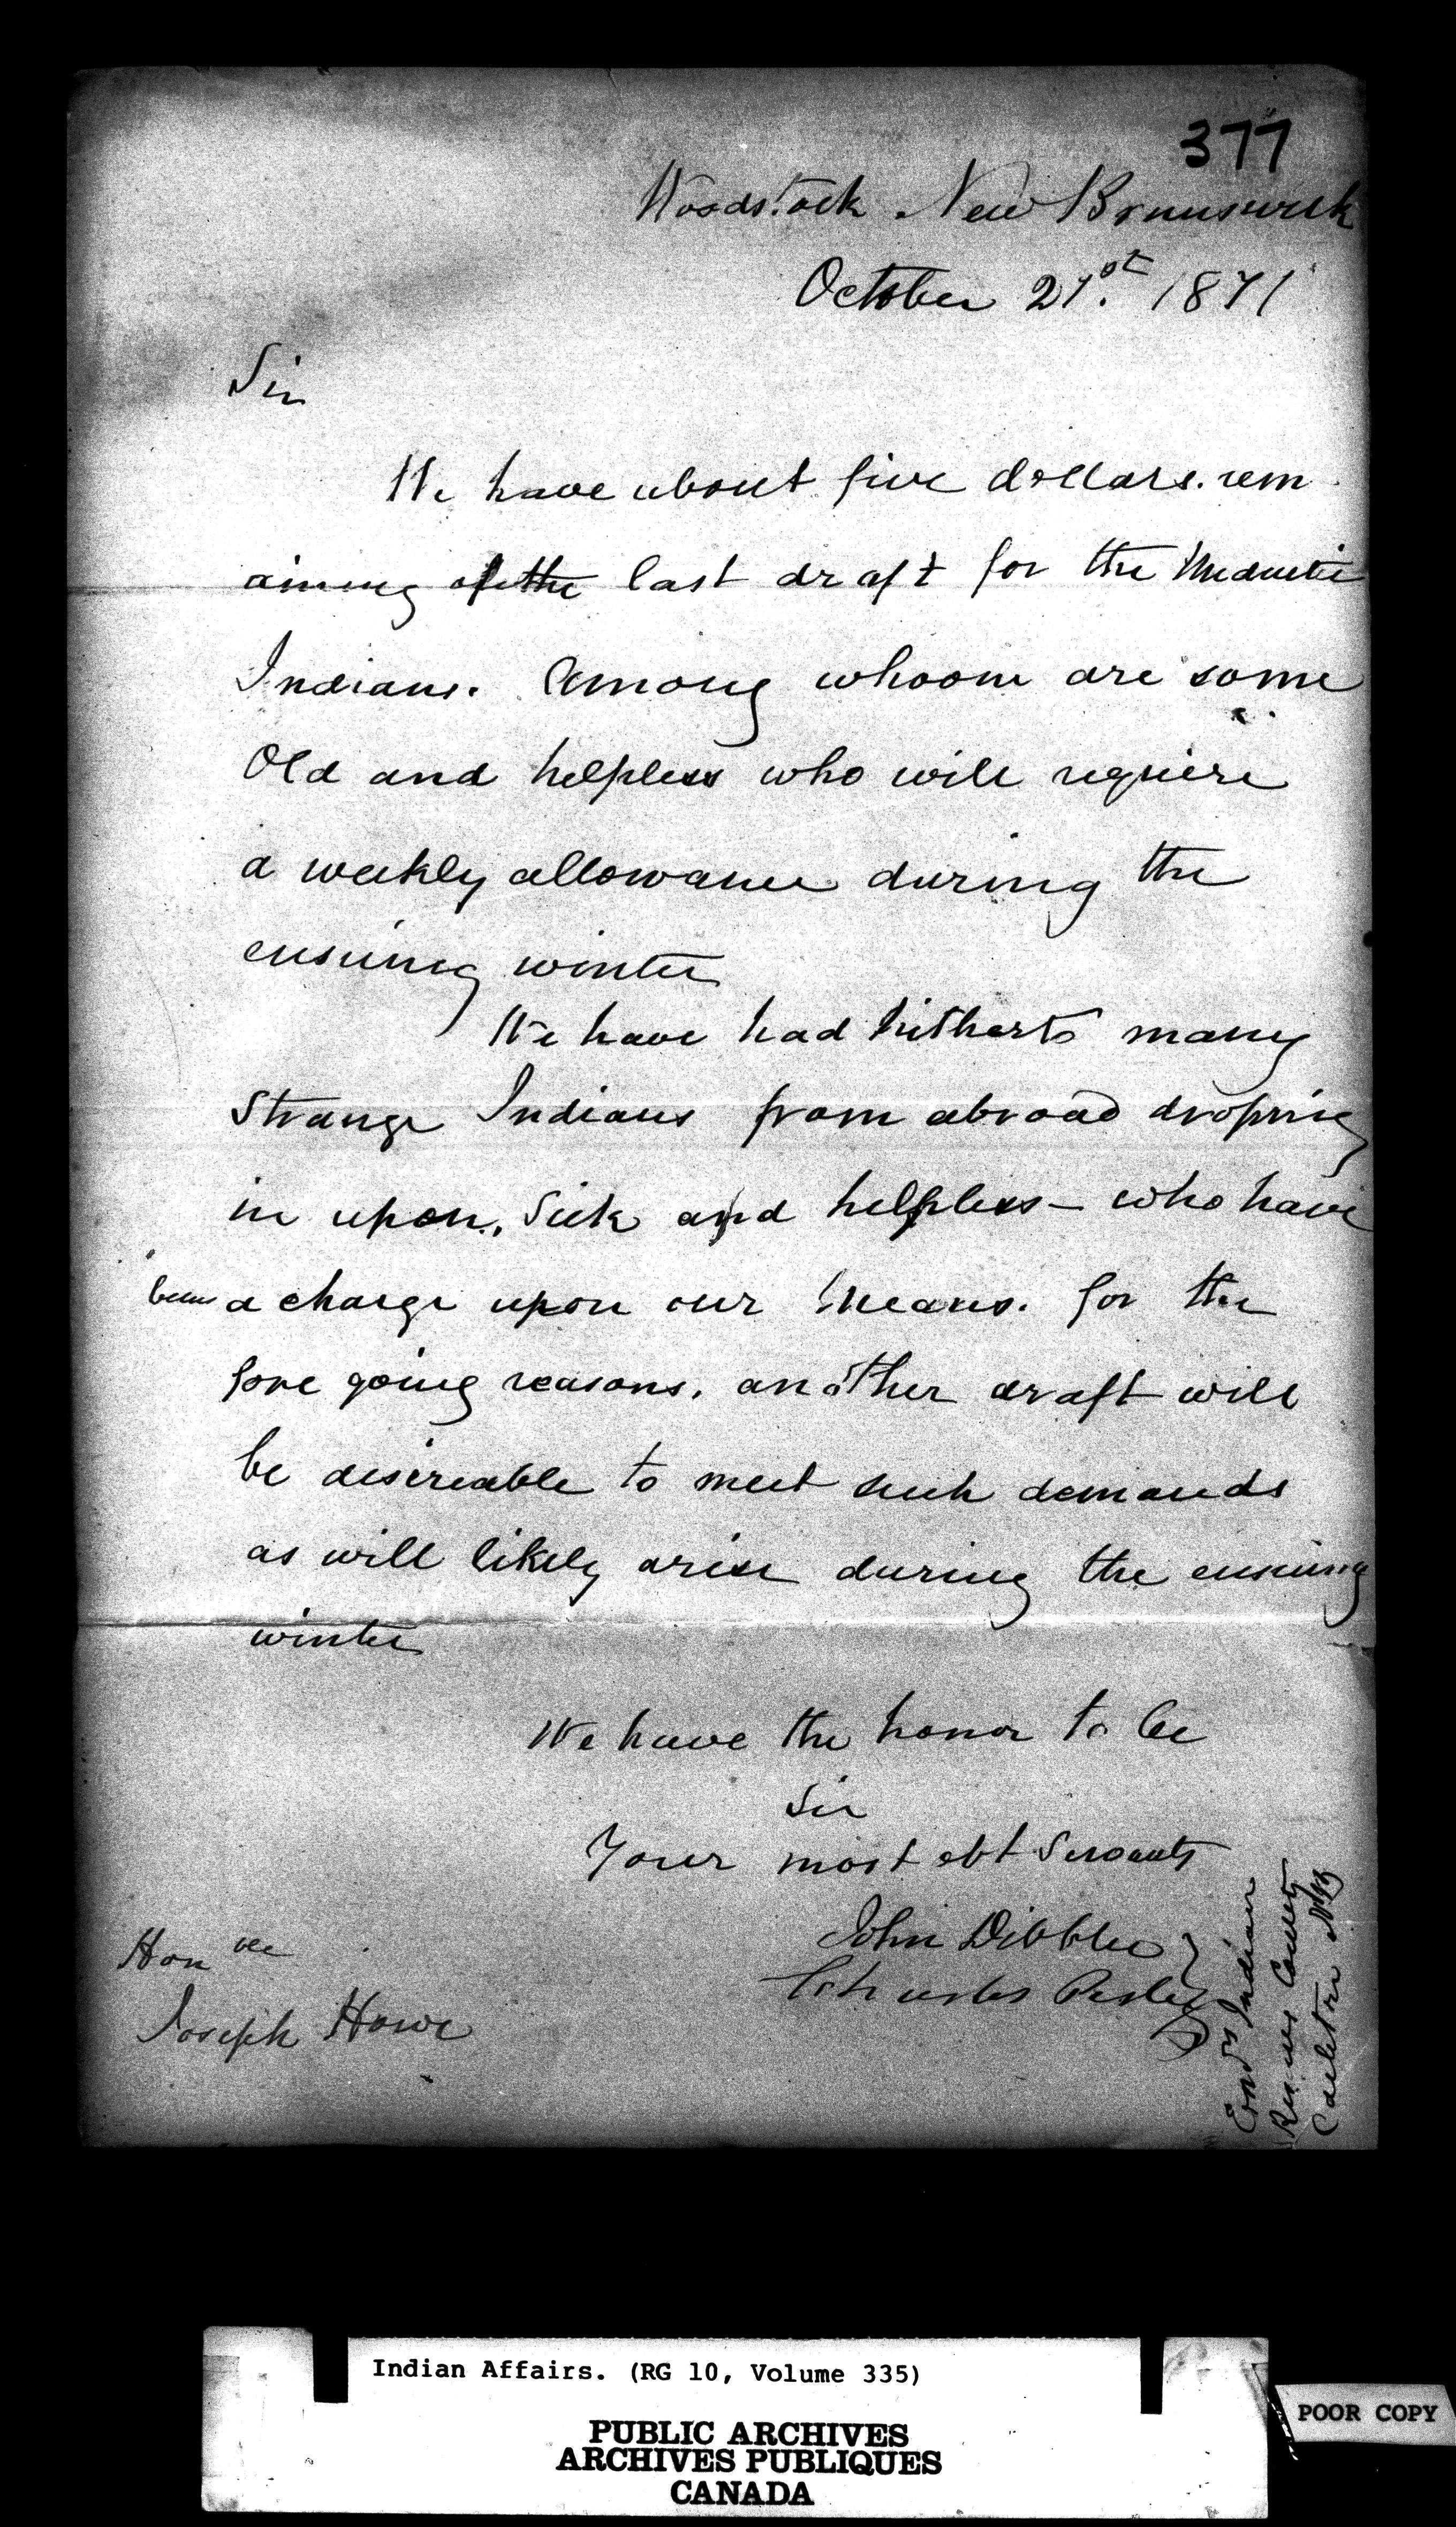 377
Woodstock New Brunswick
October 21st. 1871
Sir
We have about five dollars. rem
aining of the last draft for the Meductic
Indians. Among whoom are some
Old and helpless who will requiere
a weekly allowance during the
ensuing winter
We have had hitherto many
Strange Indians from abroad droping
in upon, Sick and helpless – who have
been a charge upon our Means. for the
fore going reasons. another draft will
be desireable to meet such demands
as will likely arise during the ensuing
winter
We have the honor to be
Sir
Your most obt Servants
John Dibblee
Charles
Comrs Indian
Reserves County
Carleton NB
Honble
Joseph Howe
Indian Affairs. (RG 10, Volume 335)
PUBLIC ARCHIVES
ARCHIVES PUBLIQUES
CANADA
POOR COPY